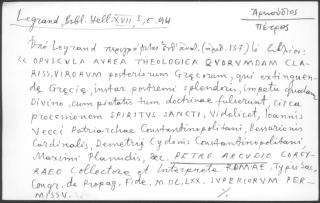 Legrand, Bibl. Hell. XVII, 5, σ. 94
Ἀρκούδιος
Πέτρος
Ἀπό Legrand περιγράφεται (ἀριθ. 137) τό βιβλίον:
« OPVSCVLA AVREA THEOLOGICA QVORVMDAM CLA-
RISS. VIRORVM posteriorum Græcorum, qui extinguen-
dæ Græciæ, instar postremi splendoris, impetu quodam
Divino, cum pietatis tum doctrinae fulserunt, circa
processionem SPIRITVS SANCTI, Videlicet, Ioannis
Vecci Patriarchae Constantinopolitani, Bessarionis
Cardinalis, Demetrij Cydonis Constantinopolitani
Maximi Planudis, &c. PETRO ARCVDIO CORCY-
RAEO Collectore et Interprete ROMAE, Typis Sac.
Congr. de Propag. Fide. M.DC.LXX. SVPERIORVM PER-
MISSV.